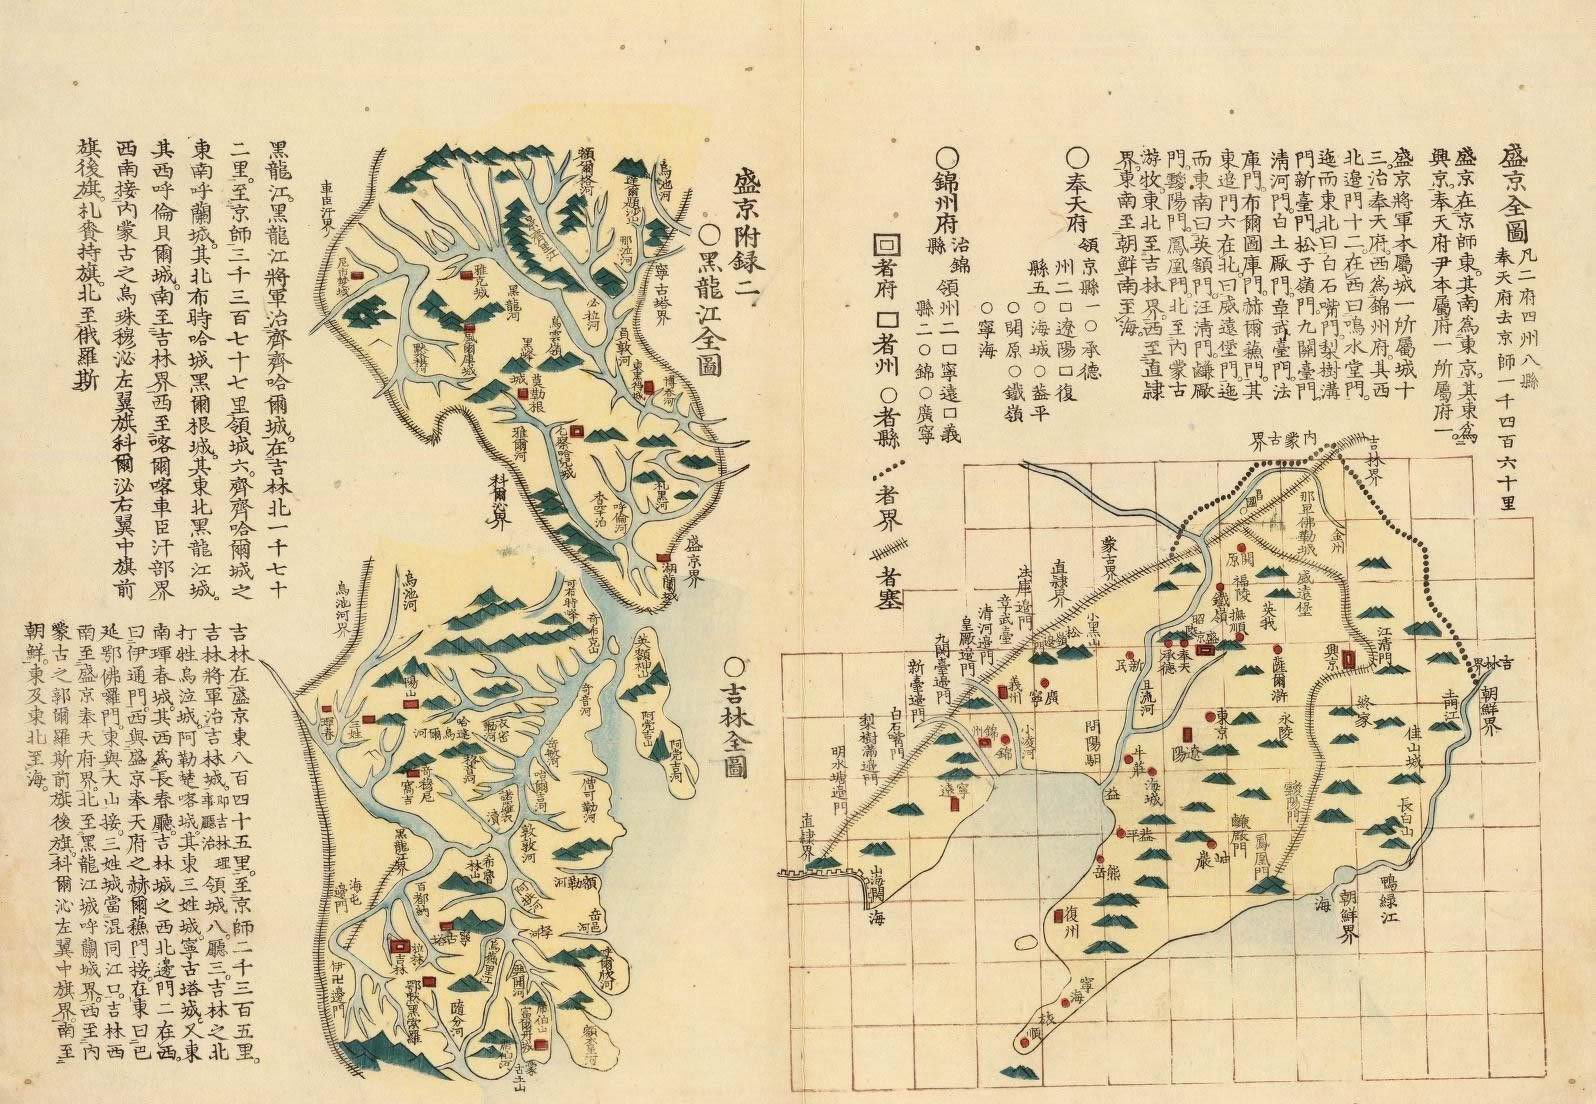 盛京全圖
凡二府四州八縣
奉天府去京師一千四百六十里
盛京在京師東其南爲東京其東爲
興京奉天府尹本屬府一所屬府一
盛京將軍本屬城一所屬城十
三治奉天府西爲錦州府其西
北邊門十二在西曰鳴水堂門
迤而東北曰白石嘴門梨樹溝
門新臺門松子嶺門九關臺門
清河門白土厰門章武臺門法
庫門布爾圖庫門赫爾蘓門其
東邊門六在北曰威遠堡門迤
而東南曰英額門汪清門鹻厰
門靉陽門鳳凰門北至內蒙古
游牧東北至吉林界西至直隷
界東南至朝鮮南至海
〇奉天府
領京縣一〇承德
州二口遼陽口復
縣五〇海城〇葢平
〇開原〇鐵嶺
〇寧海
〇錦州府
治錦縣
領州二口寧遠口義
縣二〇錦〇廣寧
回者府口者州〇者縣
者界
者塞
盛京附録二
〇黑龍江全圖
黑龍江黑龍江將軍治齊齊哈爾城在吉林北一千七十
二里至京師三千三百七十七里領城六齊齊哈爾城之
東南呼蘭城其北布特哈城黑爾根城其東北黑龍江城
其西呼倫貝爾城南至吉林界西至喀爾喀車臣汗部界
西南接內蒙古之烏珠穆沁左翼旗科爾沁右翼中旗前
旗後旗札賚特旗北至俄羅斯
〇吉林全圖
吉林在盛京東八百四十五里至京師二千三百五里
吉林將軍治吉林城即吉林理事廳治領城八廳三吉林之北
打牲烏泣城阿勒楚喀城其東三姓城寧古塔城又東
南琿春城其西爲長春廳吉林城之西北邊門二在西
曰伊通門西與盛京奉天府之赫爾蘓門接在東曰巴
延鄂佛囉門東與大山接三姓城當混同江口吉林西
南至盛京奉天府界北至黑龍江城呼蘭城界西至內
蒙古之郭爾羅斯前旗後旗科爾沁左翼中旗界南至
朝鮮東及東北至海
內蒙古界
吉林界
吉林界
朝鮮界
土門江
鴨綠江
朝鮮界
海
長白山
佳山城
江清門
興京
永陵
薩爾滸
英我
威遠堡
福陵
開原
鐵嶺
撫順
盛京
奉天
承德
昭陵
新民
東京
遼陽
靉陽門
鹻厰門
鳳凰門
岫巖
海城
牛莊
葢平
熊岳
復州
寧海
旅順
巨流河
間陽馹
小凌河
廣寧
義州
錦州
錦
寧遠
山海關
海
直隷界
明水塘邊門
梨樹溝邊門
白石嘴門
新臺邊門
九關臺邊門
皇厰邊門
清河邊門
章武臺
法庫邊門
直隷界
蒙古界
小黑山
金州
車臣汗界
烏池河
寧古塔界
額爾格河
那泣河
雅克城
黑龍河
必拉河
博吞河
莫勒根
雅爾河
科爾沁界
呼倫河
札黑河
盛京界
湖蘭城
烏池河
烏池河界
三姓
琿春
黑龍江界
海屯邊門
伊屯邊門
吉林
拉林
百都訥
寧古塔
隨分河
阿黨吉山
阿黨吉河
英額神山
奇布克山
奇吞河
僧可勒河
敦敦河
額勒河
岳邑河
古土山